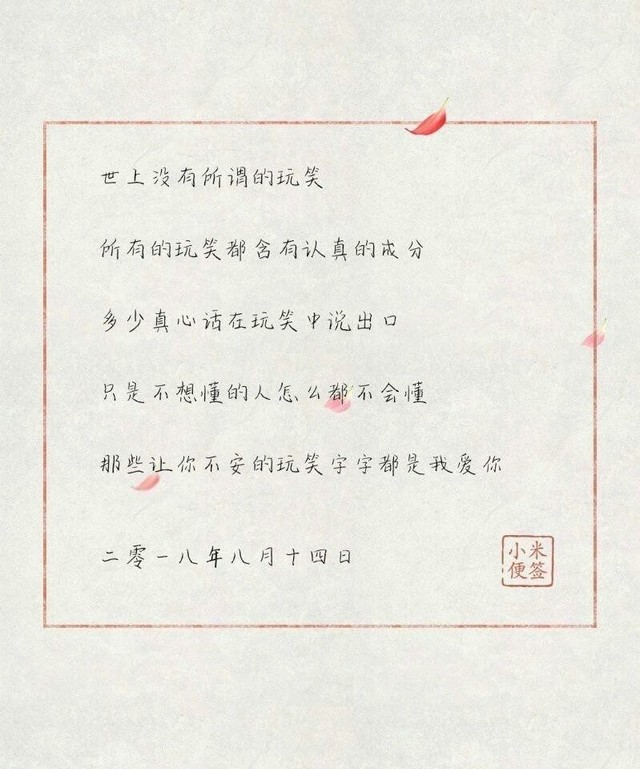 世上没有所谓的玩笑
所有的玩笑都含有认真的成分
多少真心话在玩笑中说出口
只是不想懂的人怎么都不会懂
那些让你不安的玩笑字字都是我爱你
二零一八年八月十四日
小米
便签